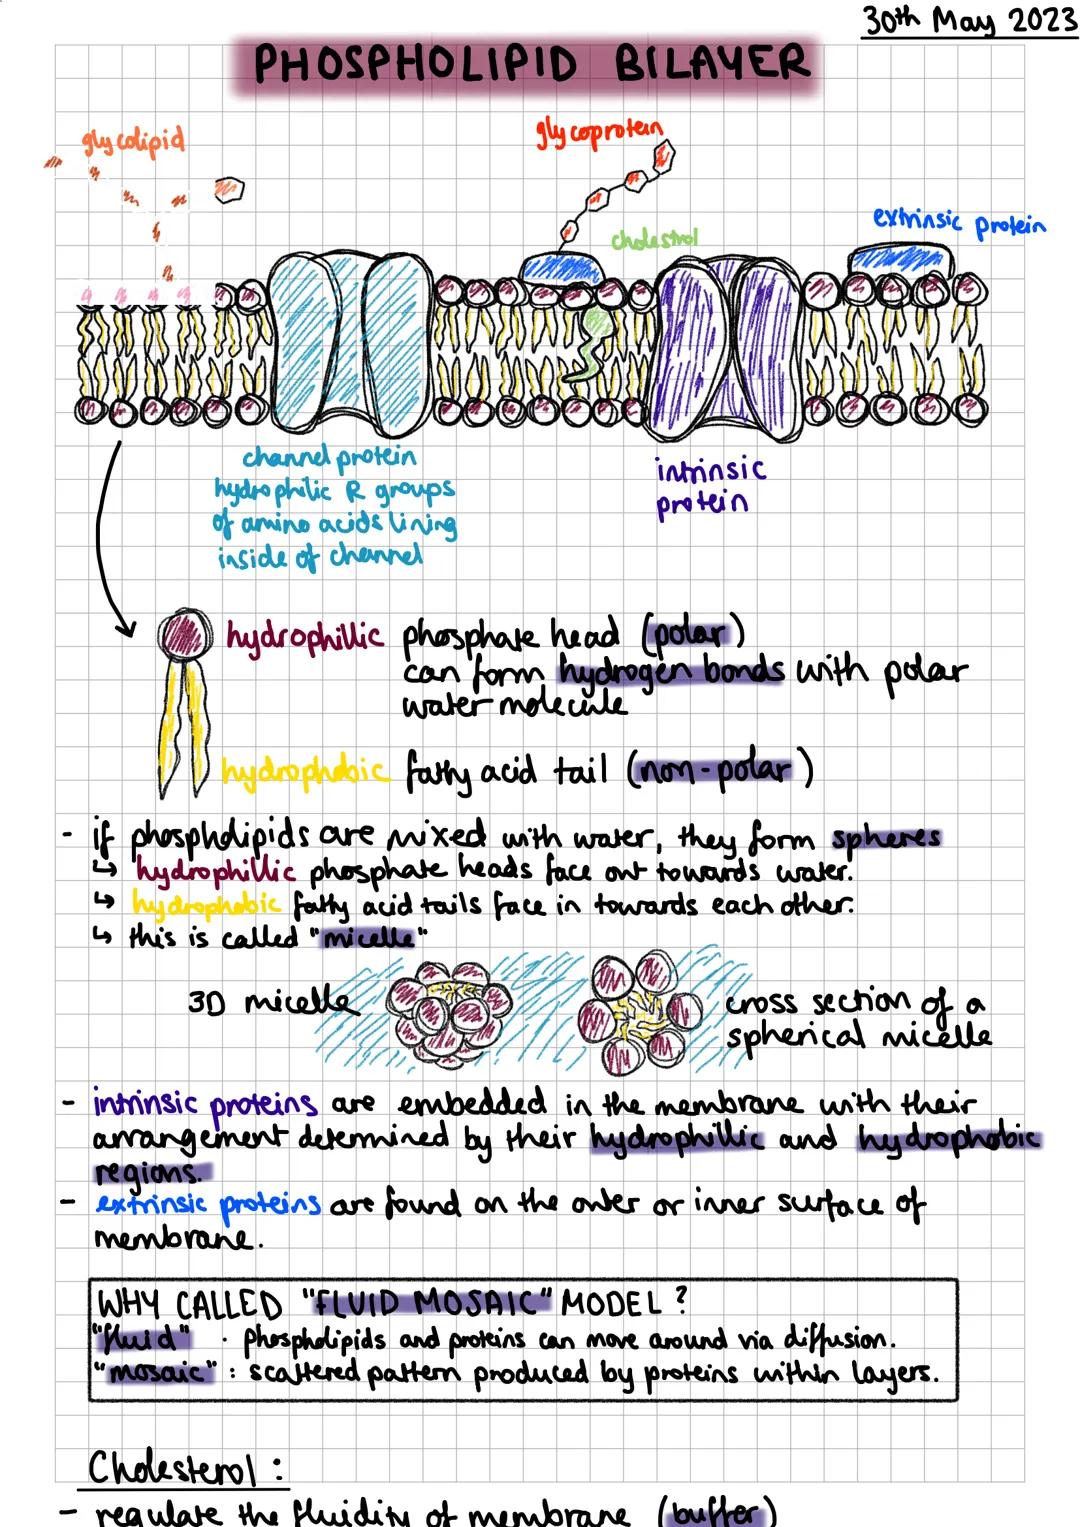 30th May 2023
PHOSPHOLIPID BILAYER
glycolipid
glycoprotein
cholestrol
extrinsic protein
channel protein
hydrophilic R groups
of amino acids lining
inside of channel
intrinsic
protein
hydrophillic phosphate head (polar)
can form hydrogen bonds with polar
water molecule
hydrophobic fatty acid tail (non-polar)
- if phospholipids are mixed with water, they form spheres
↳ hydrophillic phosphate heads face out towards water.
↳ hydrophobic fatty acid tails face in towards each other.
↳ this is called "micelle"
3D micelle
cross section of a
spherical micelle
- intrinsic proteins are embedded in the membrane with their
arrangement determined by their hydrophillic and hydrophobic
regions.
- extrinsic proteins are found on the outer or inner surface of
membrane.
WHY CALLED "FLUID MOSAIC" MODEL?
"fluid" : Phospholipids and proteins can move around via diffusion.
"mosaic" : scattered pattern produced by proteins within layers.
Cholesterol :
- regulate the fluidity of membrane (buffer)